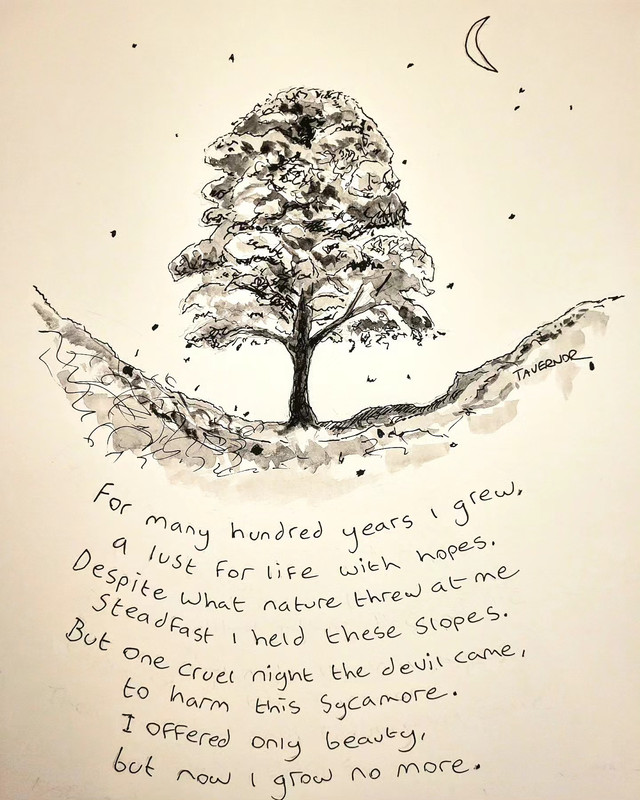 TAVERNOR
For many hundred years i grew,
a lust for life with hopes.
Despite what nature threw at me
Steadfast i held these slopes.
But one cruel night the devil came,
to harm this Sycamore.
I offered only beauty,
but now i grow no more.